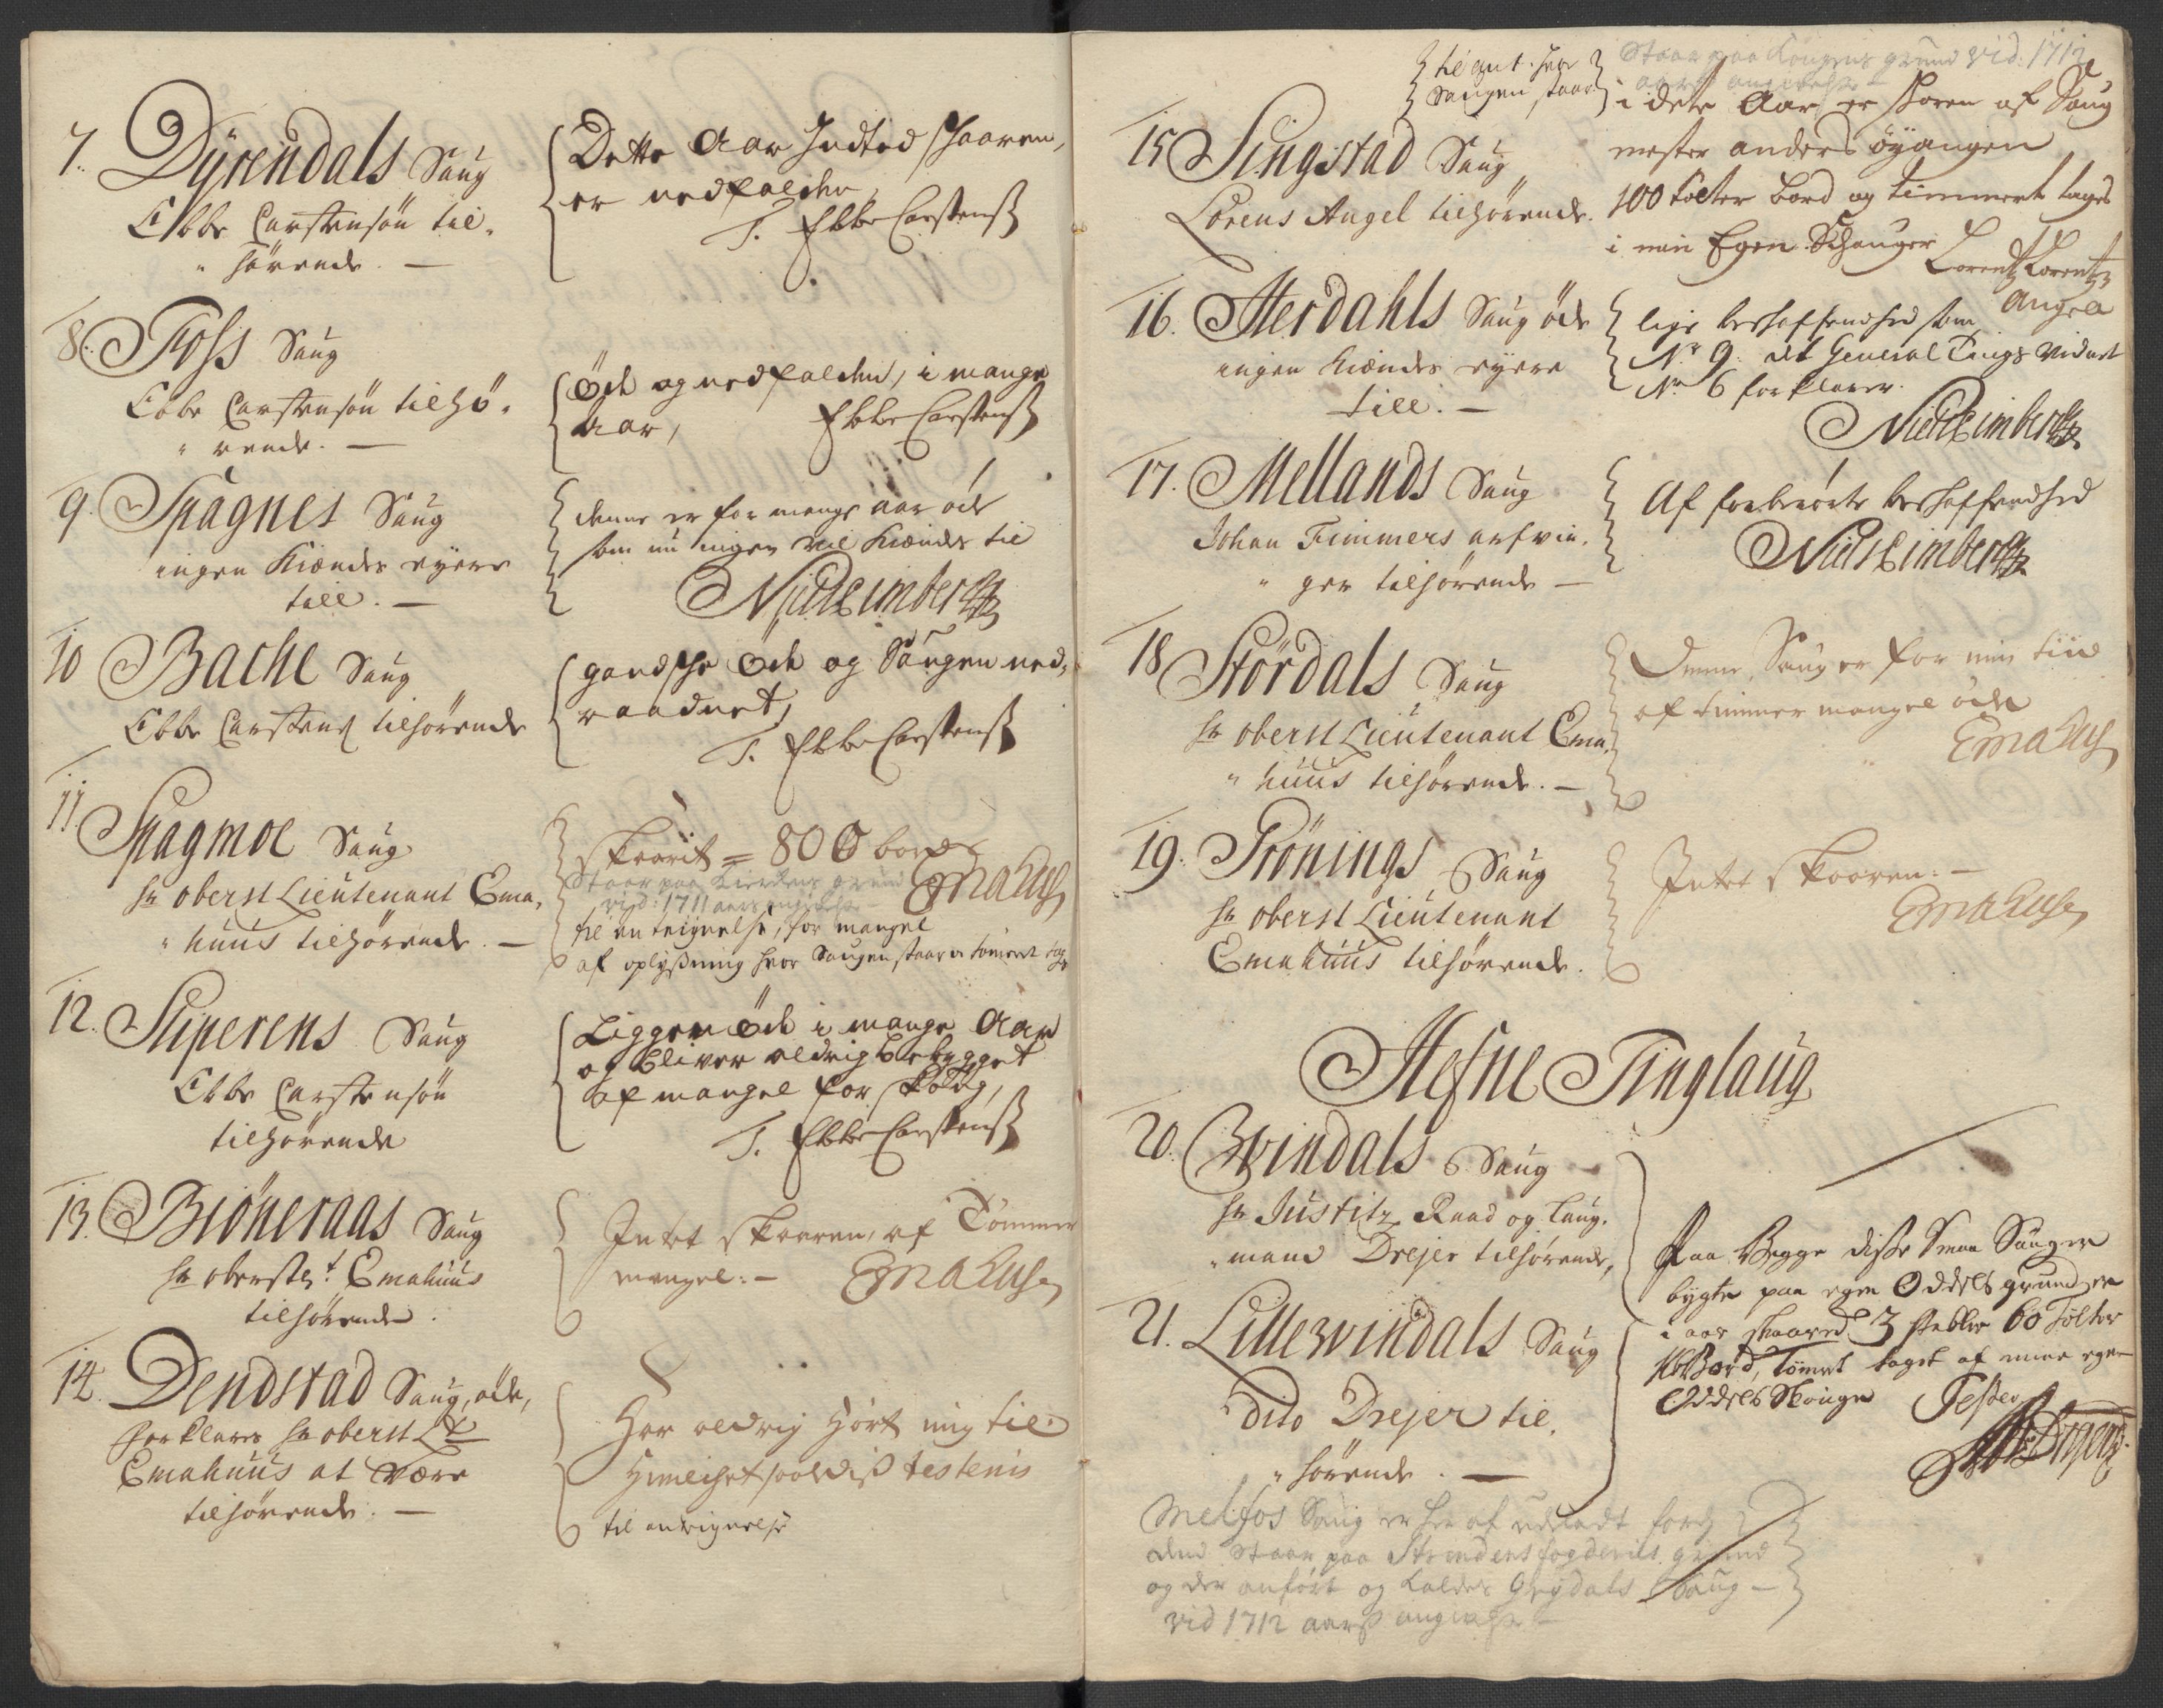 7. Dÿrendals Saug
Ebbe Carstensøn til-
" hørende. —
Dette Aar Intted skaaren,
er nedfalden
T. Ebbe Carstenß
8. Foss Saug
Ebbe Carstensøn tilhø-
" rende. —
Öde og nedfalden, i mange
Aar, Ebbe Carstenß
9. Spagnes Saug
ingen Kiendes eyere
till. —
denne er for mange aar øde
som nu ingen vil kiendes til
10 Bache Saug
Ebbe Carstens tilhørende
gandske Öde og Saugen ned-
raadnet,
T. Ebbe Carstenß
11. Spagmoe Saug
hr Oberst Lieutenant Ema-
" huus tilhørende. —
skaarit = 800 bord
Emahus
Staar paa Kirkens grund
vid: 1711 aars angivelse
til anteignelse, for mangel
af oplysning hvor Saugen staar
12. Stiperens Saug
Ebbe Carstensøn
tilhørende
Ligger öde i mange Aar
og bliver aldrig bebygget
af mangel for skoug,
T. Ebbe Carstenß
13. Biöneraas Saug
hr oberstlt. Emahuus
tilhørende.
Intet skaaren, af Tömmer
mangel: — Emahus
14. Dendstad Saug, øde,
forklares hr oberst Lt
Emahuus at være
tilhørende. —
Har aldrig hört mig til
til anteignelse
til ant. hvor
Saugen staar
Staar paa Kongens grund vid. 1712
aars angivelse
15 Singstad Saug
Lorens Angel tilhørende.
i dete Aar er skoren af Saug
mester anders öyangen
100 tolter bord og timmeret tages
i min Egen Schouger
Lorentz Lorentz
Angell
16. Herdahls Saug öde
ingen kiendes eyere
till. —
lige beskaffendhed som
Nr 9. det General Tings Vidnet
Nr 6 forklarer.
17. Mellands Saug
Johan Timmers arfvin-
" ger tilhørende —
Af forberørte beskaffendhed
18 Stördals Saug
hr Oberst Lieutenant Ema-
" huus tilhørende. —
Denne Saug er for min tiid
af timmer mangel øde
Emahus
19. Trönings Saug
hr oberst Lieutenant
Emahuus tilhørende.
Intet skaaren: —
Emahus
Hefne Tinglaug
20. Windals Saug
hr Justitz Raad og Laug-
" mand Drejer tilhørende,
21. Lillewindals Saug
Dito Drejer til-
" hørende. —
Paa Begge disse smaa Sauger
bygte paa egen Oddels grund er
i aar skaared 3 stabler 60 Tolter
Bord, Tömret taget af mine egne
Oddels Skouge Tester
Melfos Saug er her af udeladt fordj
dend staar paa Strindens fogderies grund
og der anført og kaldes Grydals Saug —
vid 1712 aars angivelse —